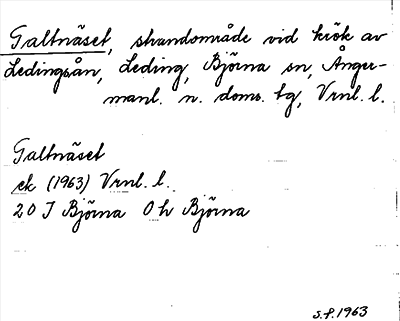 Galtnäset, strandområde vid krök av
Ledingsån, Leding, Björna sn, Ånger-
manl. n. doms. tg, Vrnl. l.
Galtnäset
ek (1963) Vrnl. l.
20 J Björna 0 h Björna
S.F. 1963